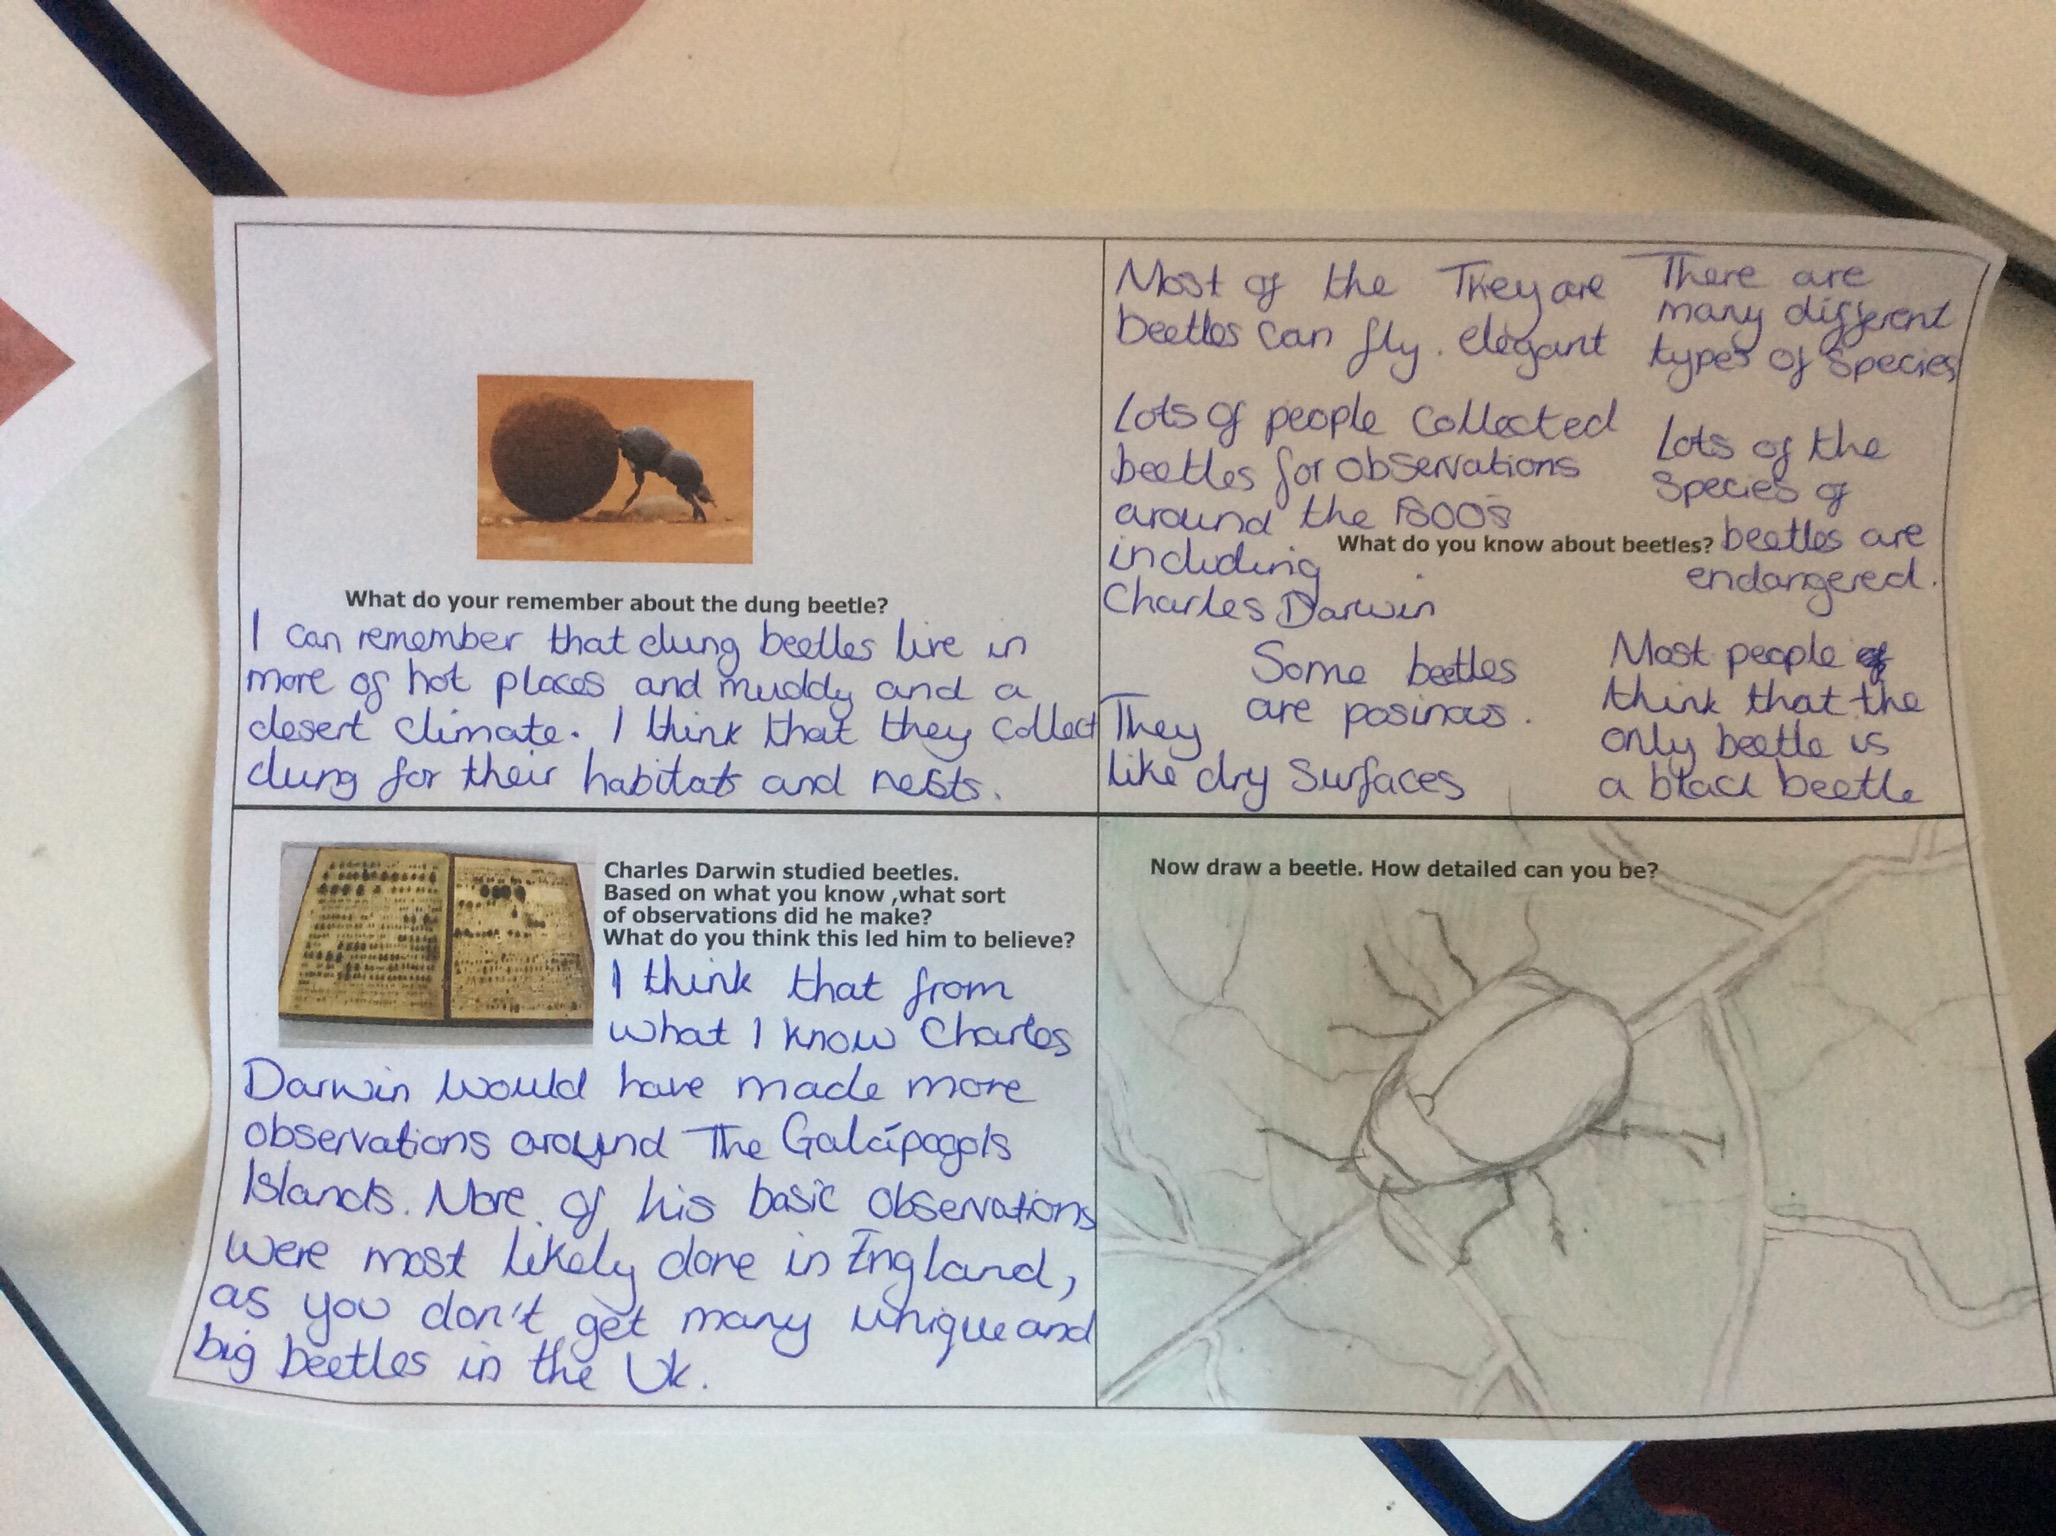 What do your remember about the dung beetle?
I can remember that dung beetles live in
more of hot places and muddy and a
desert climate. I think that they collect
dung for their habitats and nests.
Most of the
beetles can fly.
They are
elegant
There are
many different
types of species
Lots of people collected
beetles for observations
around the 1800s
including
Charles Darwin
Lots of the
species of
beetles are
endangered.
What do you know about beetles?
Some beetles
are posinous.
They
like dry surfaces
Most people
think that the
only beetle is
a black beetle
Charles Darwin studied beetles.
Based on what you know ,what sort
of observations did he make?
What do you think this led him to believe?
I think that from
what I know Charles
Darwin would have made more
observations around The Galápagols
Islands. More of his basic observations
were most likely done in England,
as you don't get many unique and
big beetles in the Uk.
Now draw a beetle. How detailed can you be?